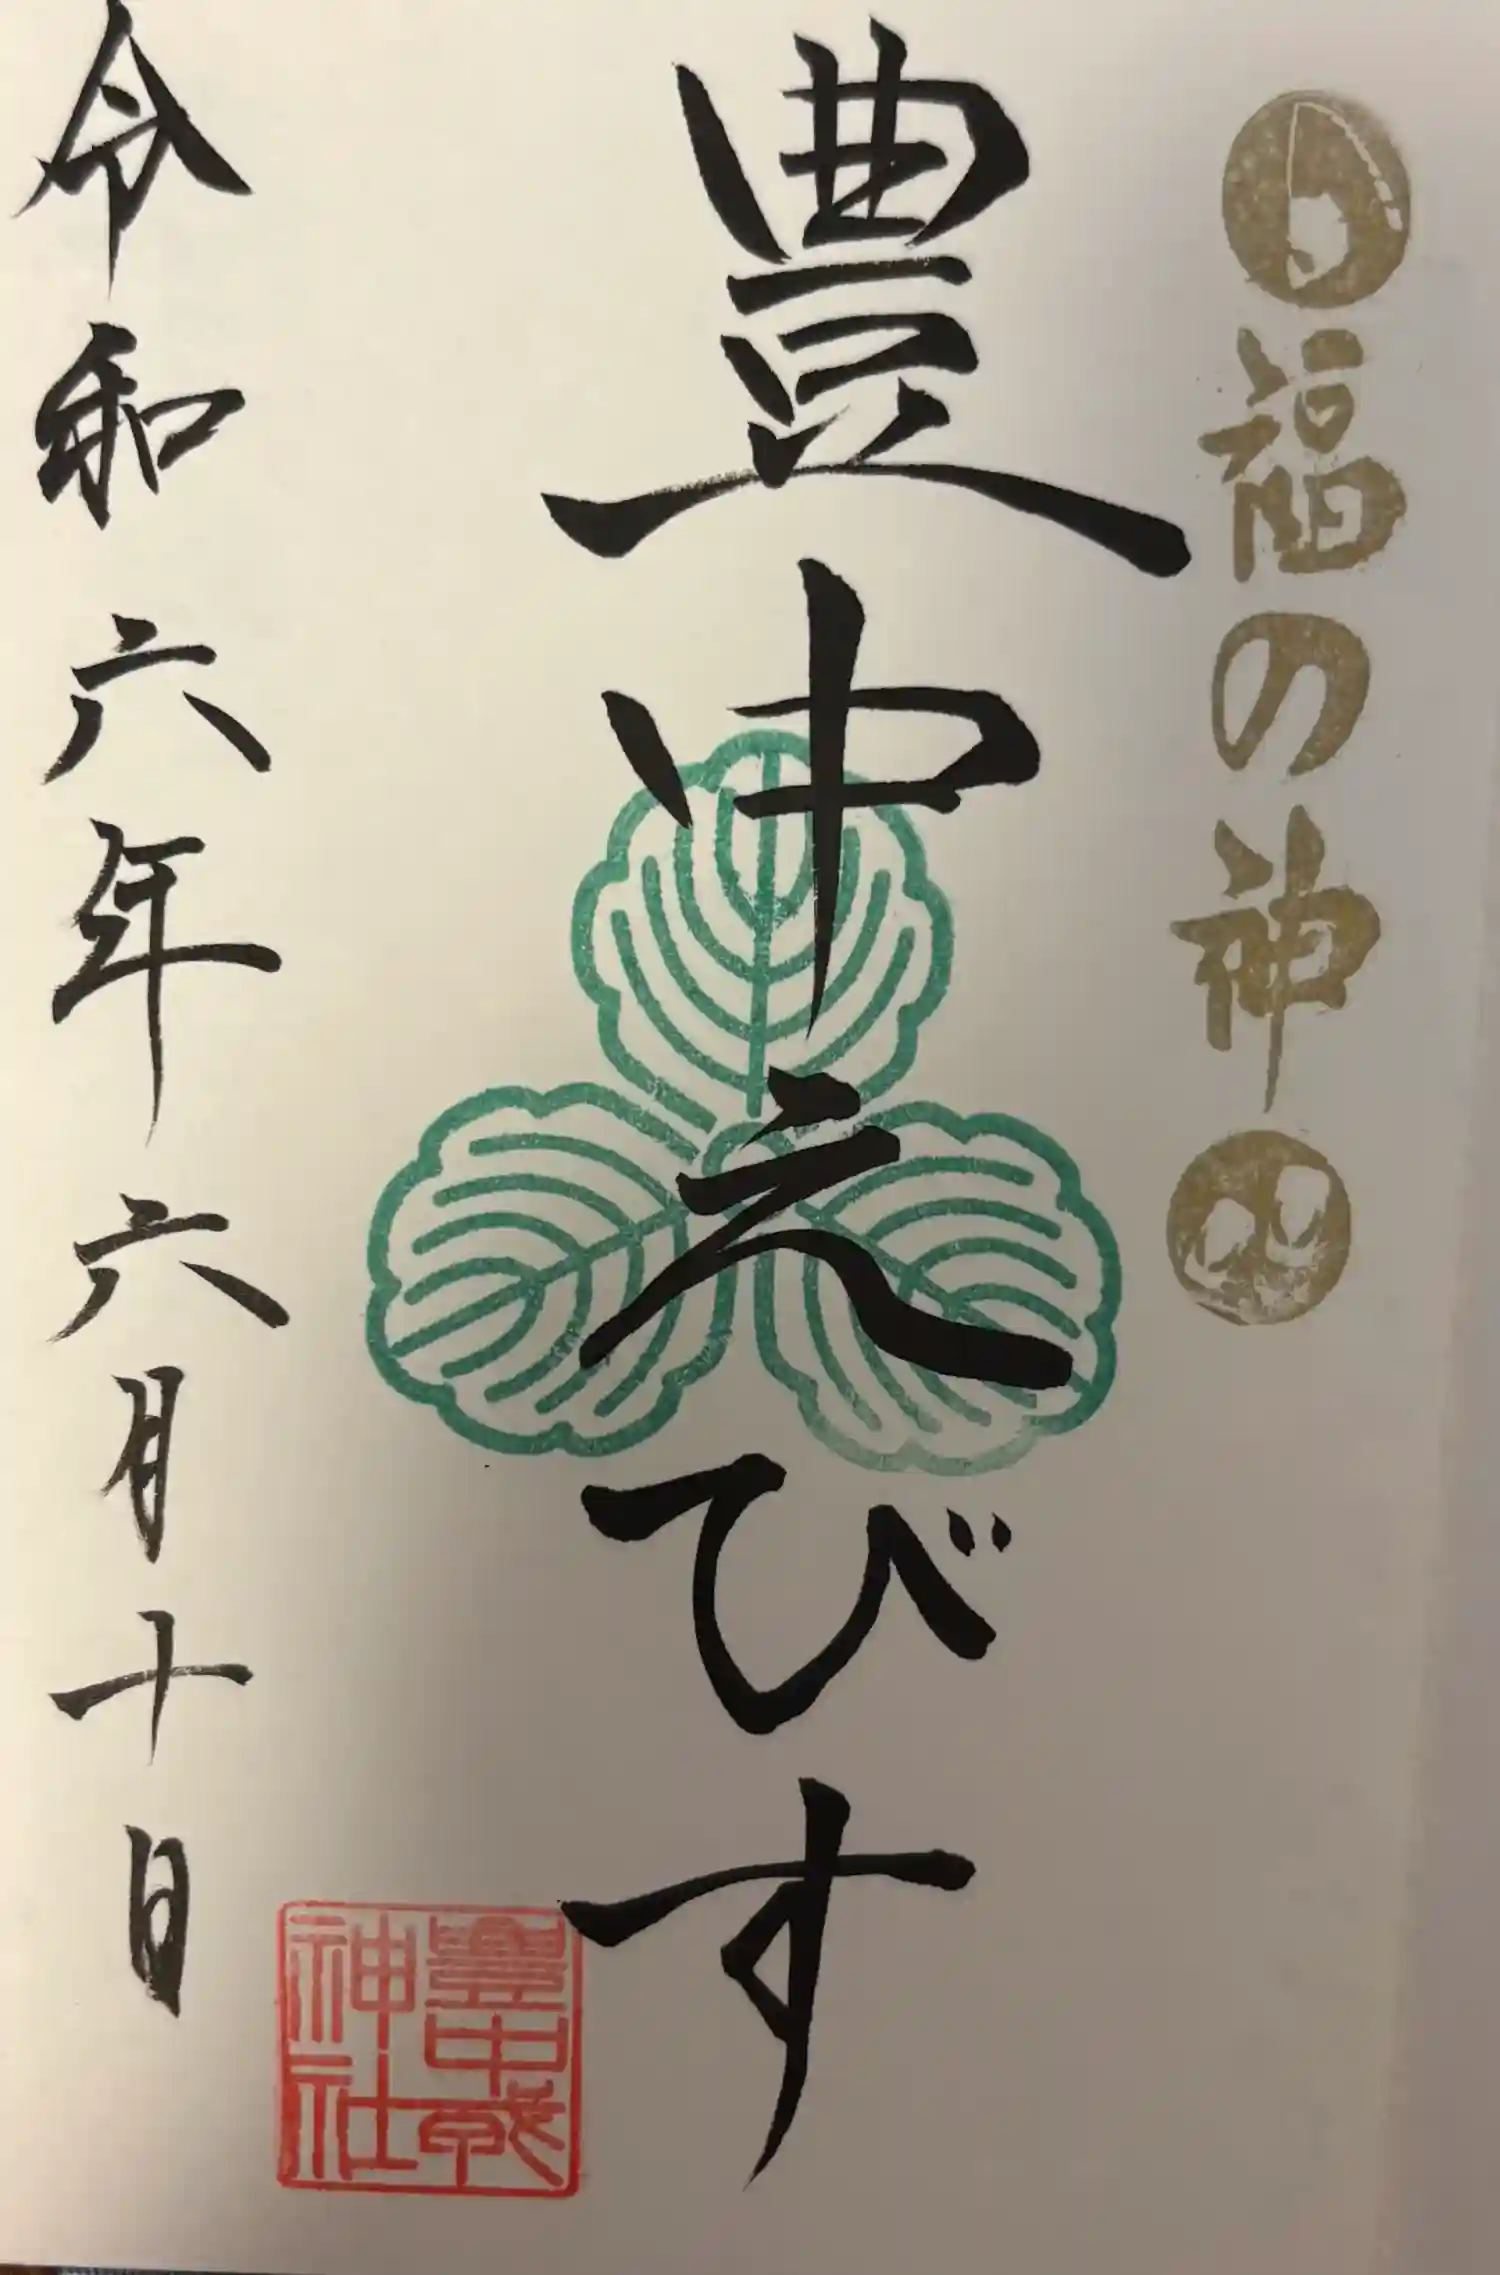 福の神
豊中えびす
令和六年六月十日
豊中戎
神社